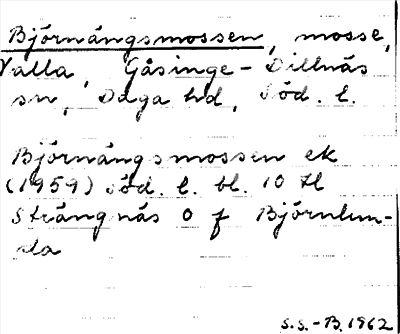 Björnängsmossen, mosse,
Valla, Gåsinge-Dillnäs
sn, Daga hd, Söd. l.
Björnängsmossen ek
(1959) Söd. l. bl. 10 Hl
Strängnäs O f Björnlun-
da
S.S.-B. 1962